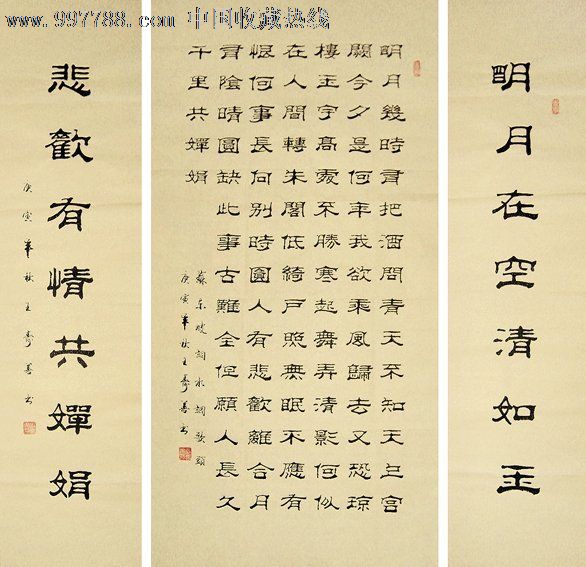 www.997788.com 中国收藏热线
明月在空清如玉
明月幾時有把酒問青天不知天上宮
闕今夕是何年我欲乘風歸去又恐琼
樓玉宇高處不勝寒起舞弄清影何似
在人間轉朱閣低綺戶照無眠不應有
恨何事長向別時圓人有悲歡離合月
有陰晴圓缺此事古難全但願人長久
千里共嬋娟
蘇东坡詞水調歌頭
庚寅年秋王壽善书
悲歡有情共嬋娟
庚寅年秋王壽善书